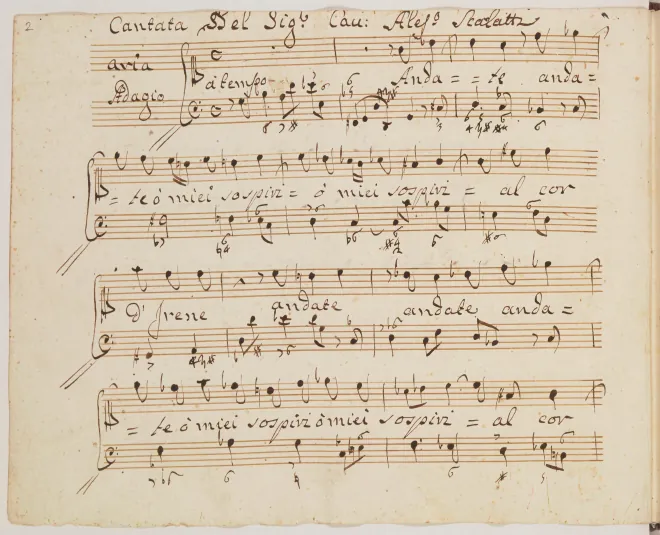 2
Cantata Del Sigr Cau: Alesso Scarlatti
aria
Adagio
à tempo Anda = = te anda =
= te ò miei sospiri = ò miei sospiri = al cor
D'Irene andate andate anda =
= te ò miei sospiri ò miei sospiri = al cor